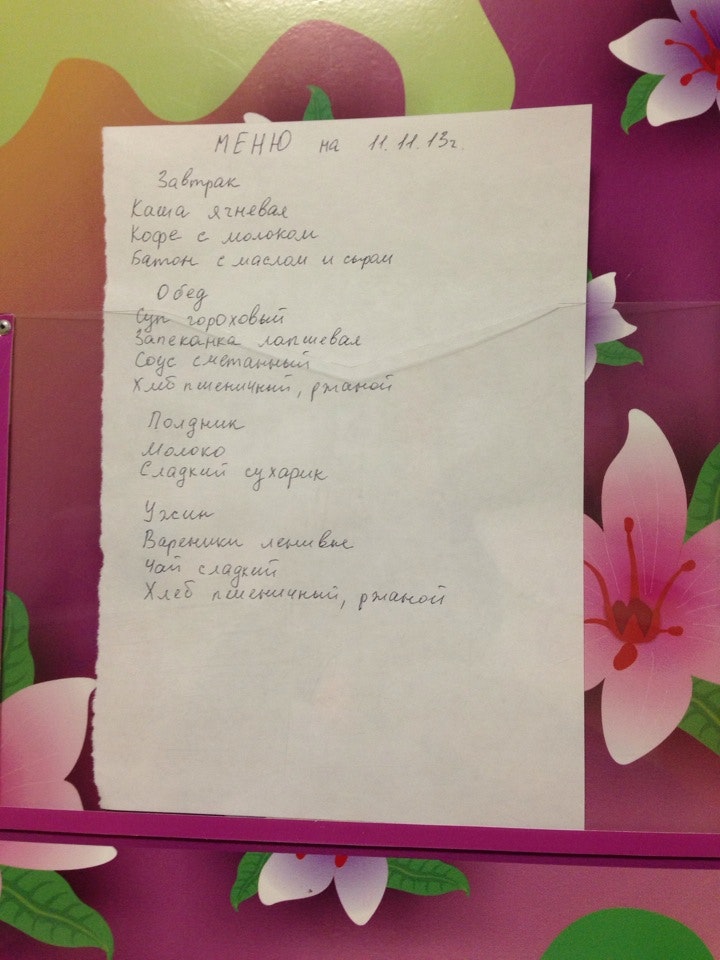 МЕНЮ на 11.11.13г.
Завтрак
Каша ячневая
Кофе с молоком
Батон с маслом и сыром
Обед
Суп гороховый
Запеканка лапшевая
Соус сметанный
Хлеб пшеничный, ржаной
Полдник
Молоко
Сладкий сухарик
Ужин
Вареники ленивые
Чай сладкий
Хлеб пшеничный, ржаной